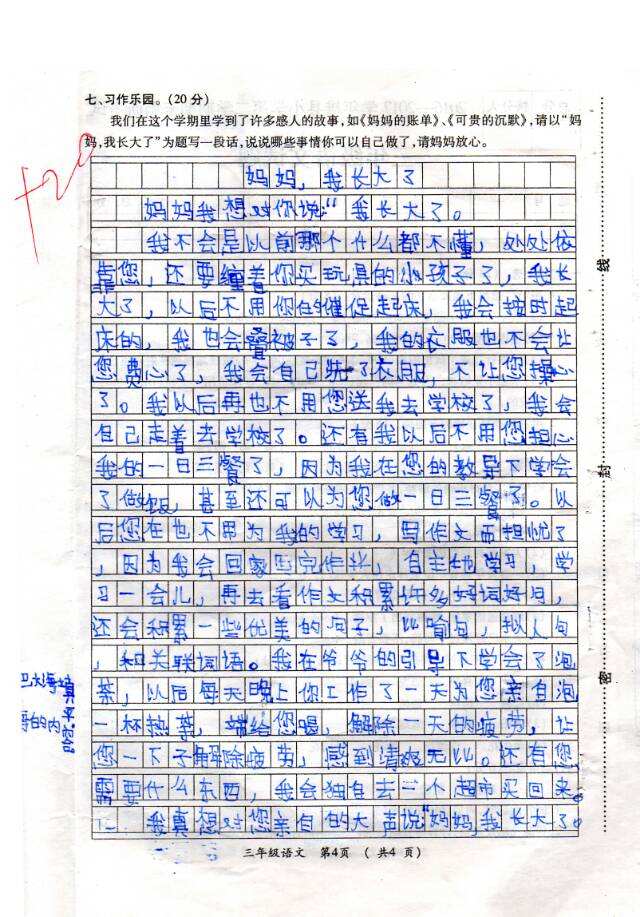 七、习作乐园。(20分)
我们在这个学期里学到了许多感人的故事,如《妈妈的账单》、《可贵的沉默》,请以“妈
妈,我长大了”为题写一段话,说说哪些事情你可以自己做了,请妈妈放心。
+20
妈妈，我长大了
妈妈我想对你说：“我长大了。
我不会是以前那个什么都不懂，处处依
靠您，还要缠着你买玩具的小孩子了，我长
大了，以后不用你的催促起床，我会按时起
床的，我也会叠被子了，我的衣服也不会让
您费心了，我会自己洗了衣服，不让您操心
了。我以后再也不用您送我去学校了，我会
自己走着去学校了。还有我以后不用您担心
我的一日三餐了，因为我在您的教导下学会
了做饭，甚至还可以为您做一日三餐了。以
后您在也不用为我的学习，写作文而担忧了
，因为我会回家因完作业，自主地学习，学
习一会儿，再去看作文积累许多好词好句，
还会积累一些优美的句子，比喻句，拟人句
，和关联词语。我在爷爷的引导下学会了泡
茶，以后每天晚上你工作了一天为您亲自泡
一杯热茶，端给您喝，解除一天的疲劳，让
您一下子解除疲劳，感到清爽无比。还有您
需要什么东西，我会独自去一个超市买回来。
我真想对您亲自的大声说“妈妈，我长大了。
的内
线
封
密
三年级语文 第4页 (共4页)